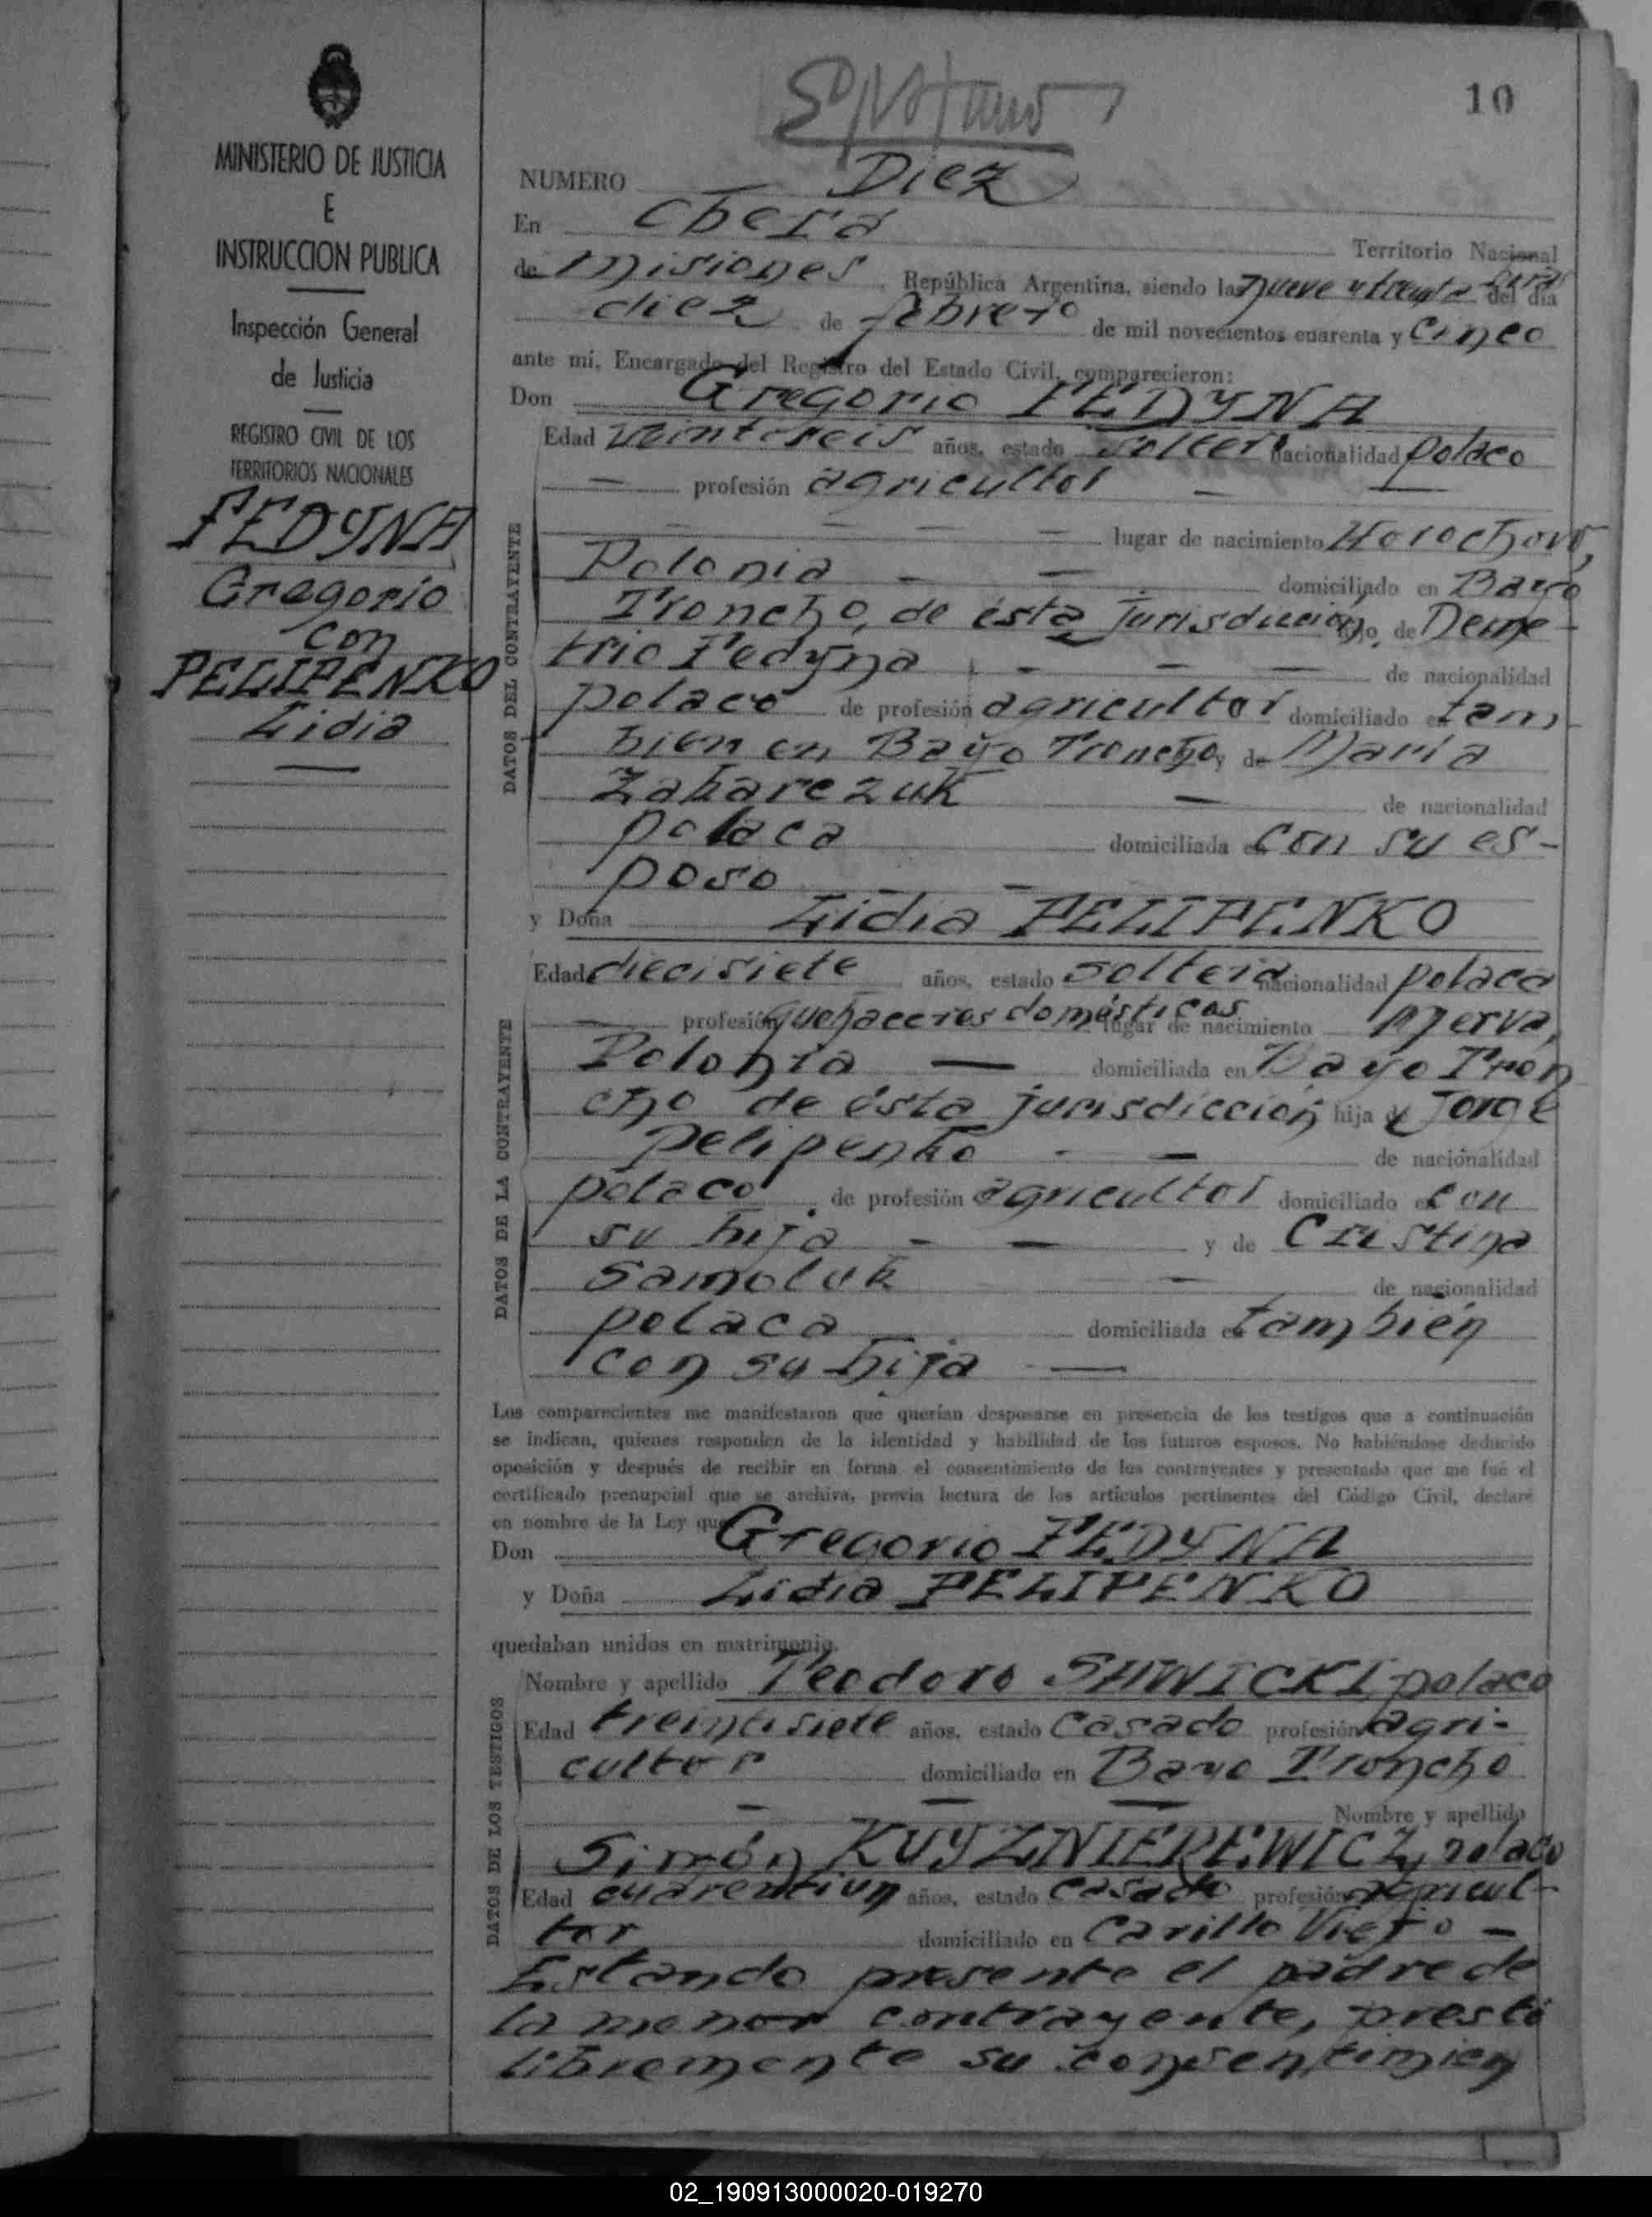 10
MINISTERIO DE JUSTICIA
E
INSTRUCCION PUBLICA
Inspección General
de Justicia
REGISTRO CIVIL DE LOS
TERRITORIOS NACIONALES
FEDYNA
Gregorio
con
PELIPENKO
Lidia
NUMERO Diez
En Oberá Territorio Nacional
de Misiones, República Argentina, siendo las nueve y treinta horas del día
diez de febrero de mil novecientos cuarenta y cinco
ante mí, Encargado del Registro del Estado Civil, comparecieron:
Don Gregorio FEDYNA
DATOS DEL CONTRAYENTE
Edad veintiseis años, estado soltero nacionalidad polaco
— profesión agricultor —
lugar de nacimiento Horochovo,
Polonia — — domiciliado en Bayo
Troncho, de ésta jurisdicción, hijo de Deme-
trio Fedyna - — — de nacionalidad
polaco de profesión agricultor domiciliado en tam-
bien en Bayo Troncho, y de María
Zaharczuk — de nacionalidad
polaca domiciliada en con su es-
poso — —
y Doña Lidia PELIPENKO
DATOS DE LA CONTRAYENTE
Edad diecisiete años, estado soltera nacionalidad polaca
— profesión quehaceres domésticos lugar de nacimiento
Polonia — domiciliada en Bayo Tron
cho de ésta jurisdicción hija de Jorge
Pelipenko - — de nacionalidad
polaco, de profesión agricultor domiciliado en con
su hija - — y de Cristina
Samoluk — de nacionalidad
polaca domiciliada en también
con su hija —
Los comparecientes me manifestaron que querían desposarse en presencia de los testigos que a continuación
se indican, quienes responden de la identidad y habilidad de los futuros esposos. No habiéndose deducido
oposición y después de recibir en forma el consentimiento de los contrayentes y presentado que me fué el
certificado prenupcial que se archiva, previa lectura de los artículos pertinentes del Código Civil, declaré
en nombre de la Ley que
Don Gregorio FEDYNA
y Doña Lidia PELIPENKO
quedaban unidos en matrimonio.
DATOS DE LOS TESTIGOS
Nombre y apellido Teodoro SAWICKI, polaco
Edad treintisiete años, estado casado profesión agri-
cultor domiciliado en Bayo Troncho
— — — Nombre y apellido
Simón KUYZNIEREWICZ, polaco
Edad cuarentiun años, estado casado profesión agricul-
tor domiciliado en Carillo Viejo —
Estando presente el padre de
la menor contrayente, prestó
libremente su consentimien
02_190913000020-019270